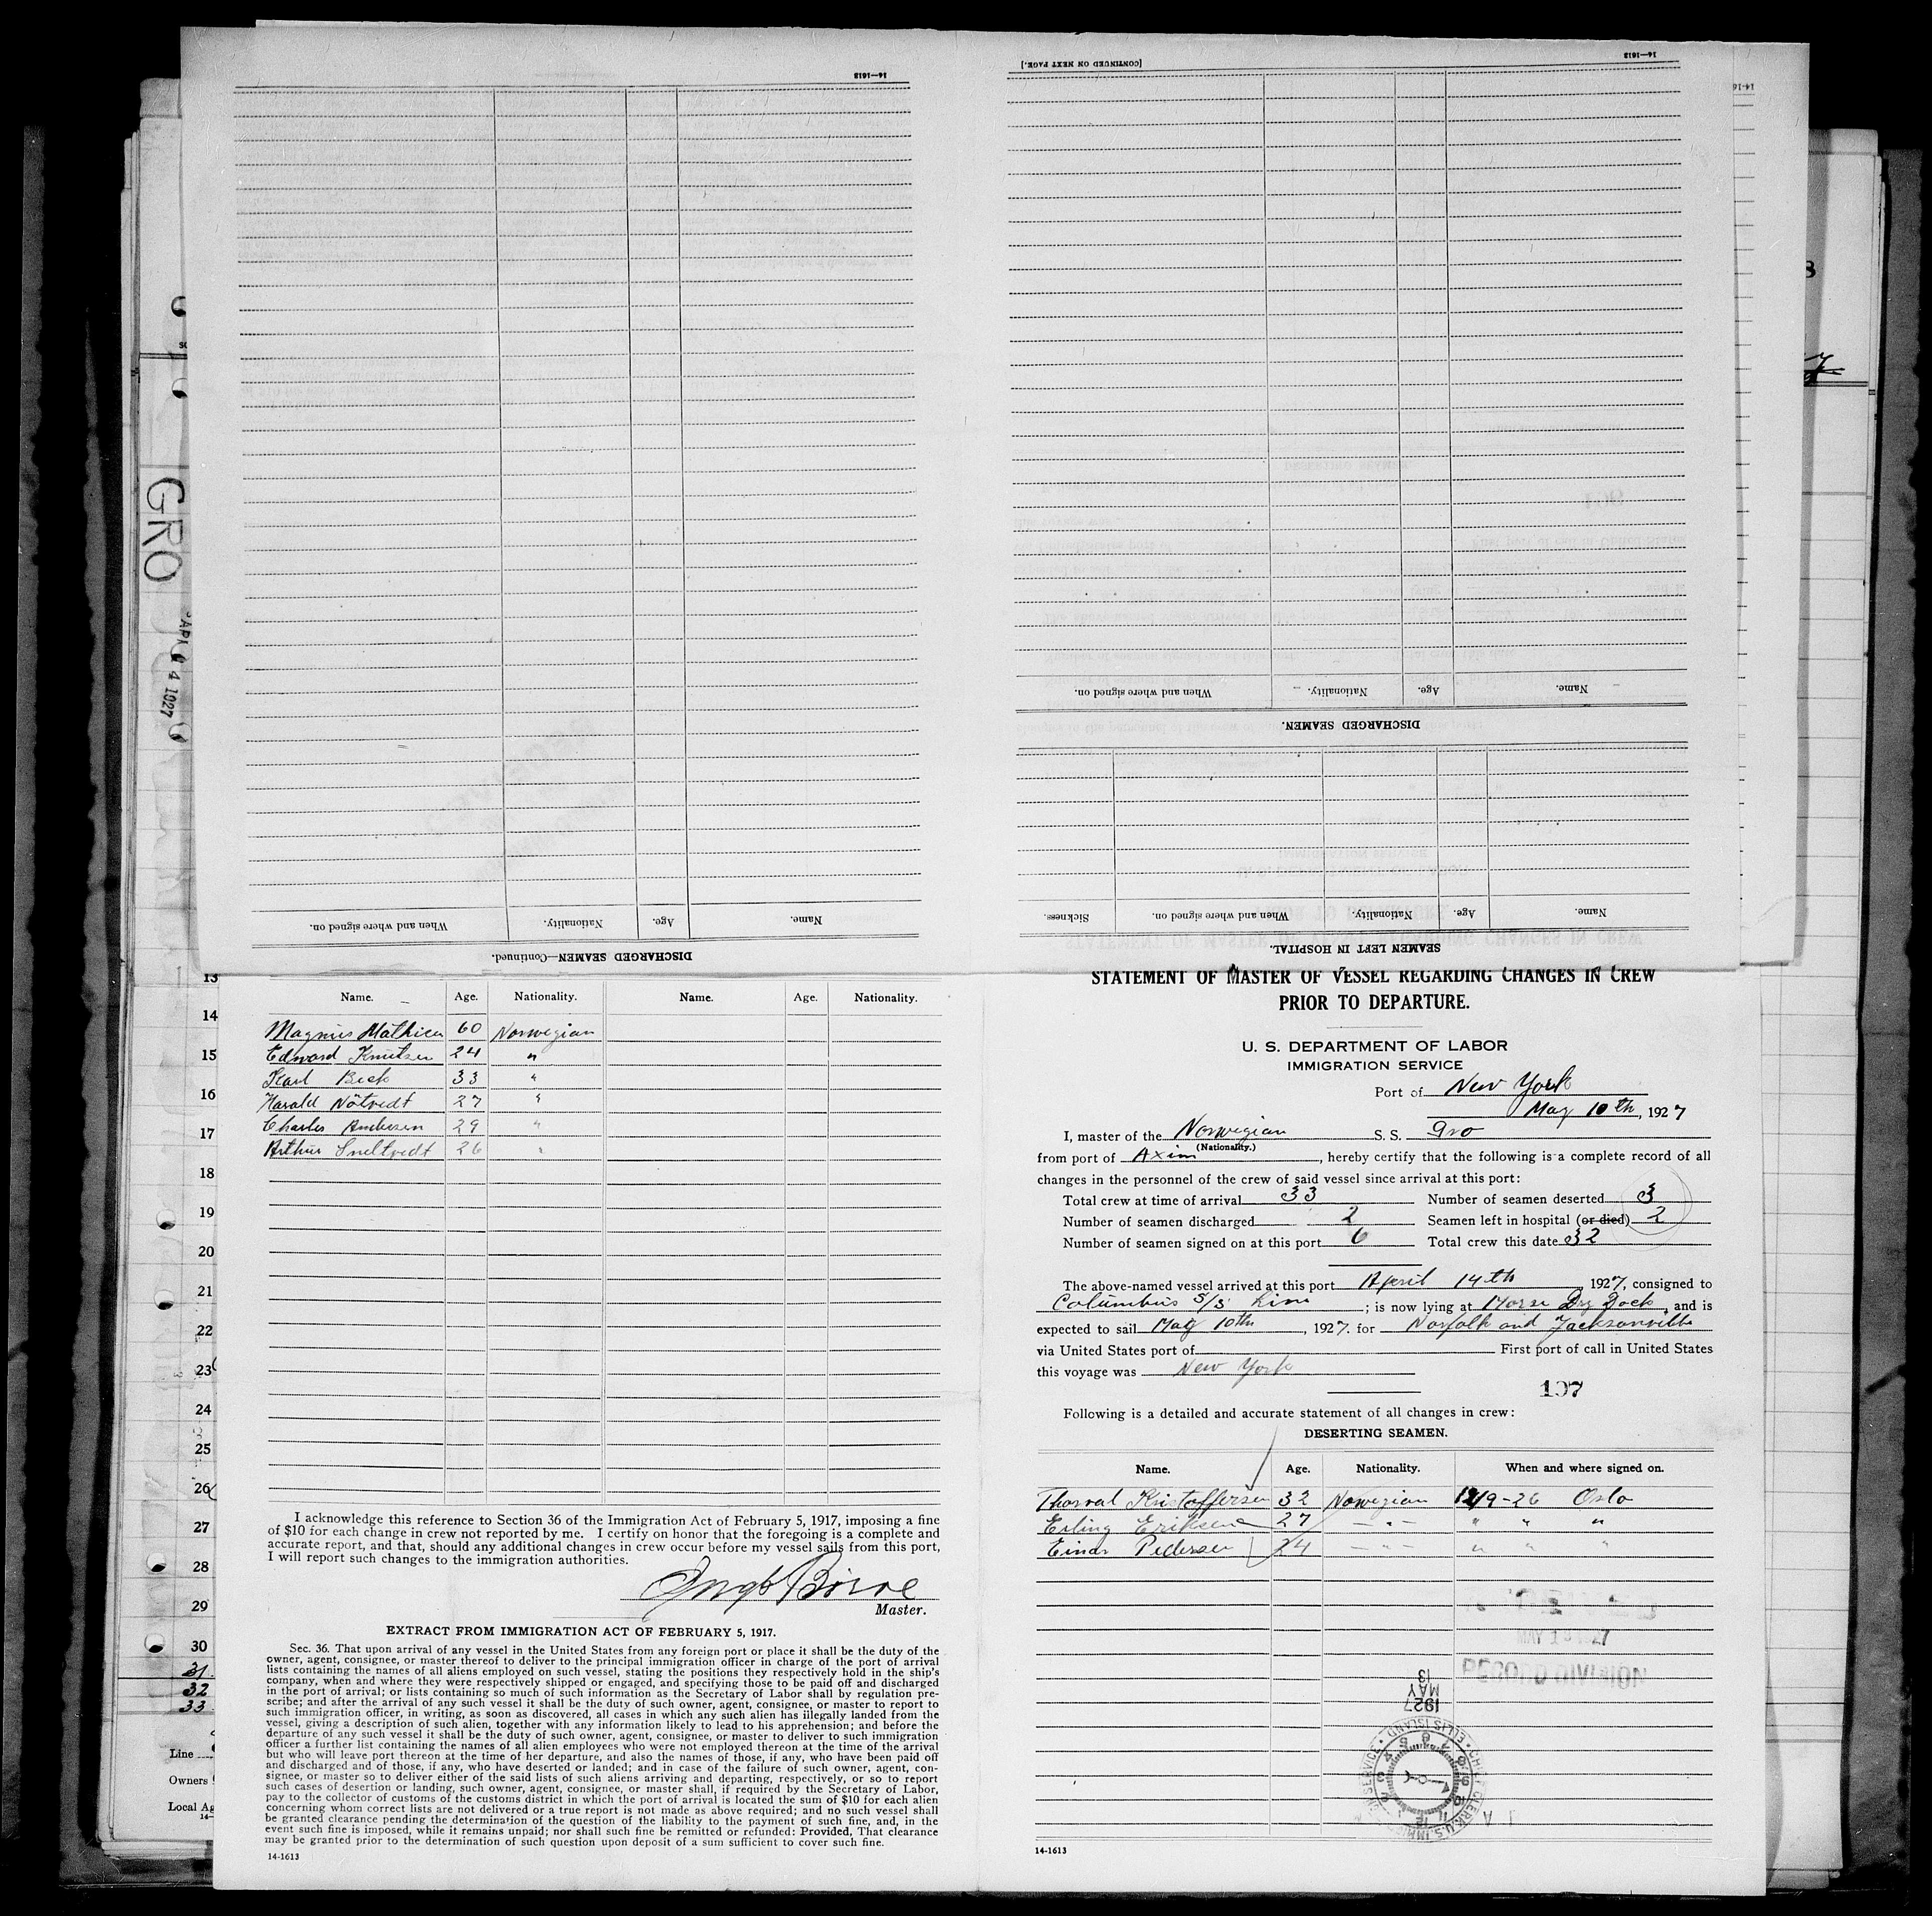 14—1613
[CONTINUED ON NEXT PAGE.]
14—1613
14-16
GRO
1927
When and where signed on.
Nationality.
Age.
Name.
DISCHARGED SEAMEN.
Sickness.
When and where signed on.
Nationality.
Age.
Name.
SEAMEN LEFT IN HOSPITAL.
When and where signed on.
Nationality.
Age.
Name.
DISCHARGED SEAMEN—Continued.
13
14
15
16
17
18
19
20
21
22
23
24
25
26
27
28
29
30
31
32
33
Line
Owners
Local Ag
14—
Name. Age. Nationality. Name. Age. Nationality.
Magnus Mathiesen 60 Norwegian
Edward Knutsen 24 "
Karl Beck 33 "
Harald Nötvedt 27 "
Charles Andersen 29 "
Arthur Sneltvedt 26 "
I acknowledge this reference to Section 36 of the Immigration Act of February 5, 1917, imposing a fine
of $10 for each change in crew not reported by me. I certify on honor that the foregoing is a complete and
accurate report, and that, should any additional changes in crew occur before my vessel sails from this port,
I will report such changes to the immigration authorities.
Master.
EXTRACT FROM IMMIGRATION ACT OF FEBRUARY 5, 1917.
Sec. 36. That upon arrival of any vessel in the United States from any foreign port or place it shall be the duty of the
owner, agent, consignee, or master thereof to deliver to the principal immigration officer in charge of the port of arrival
lists containing the names of all aliens employed on such vessel, stating the positions they respectively hold in the ship's
company, when and where they were respectively shipped or engaged, and specifying those to be paid off and discharged
in the port of arrival; or lists containing so much of such information as the Secretary of Labor shall by regulation pre-
scribe; and after the arrival of any such vessel it shall be the duty of such owner, agent, consignee, or master to report to
such immigration officer, in writing, as soon as discovered, all cases in which any such alien has illegally landed from the
vessel, giving a description of such alien, together with any information likely to lead to his apprehension; and before the
departure of any such vessel it shall be the duty of such owner, agent, consignee, or master to deliver to such immigration
officer a further list containing the names of all alien employees who were not employed thereon at the time of the arrival
but who will leave port thereon at the time of her departure, and also the names of those, if any, who have been paid off
and discharged and of those, if any, who have deserted or landed; and in case of the failure of such owner, agent, con-
signee, or master so to deliver either of the said lists of such aliens arriving and departing, respectively, or so to report
such cases of desertion or landing, such owner, agent, consignee, or master shall, if required by the Secretary of Labor,
pay to the collector of customs of the customs district in which the port of arrival is located the sum of $10 for each alien
concerning whom correct lists are not delivered or a true report is not made as above required; and no such vessel shall
be granted clearance pending the determination of the question of the liability to the payment of such fine, and, in the
event such fine is imposed, while it remains unpaid; nor shall such fine be remitted or refunded: Provided, That clearance
may be granted prior to the determination of such question upon deposit of a sum sufficient to cover such fine.
14-1613
STATEMENT OF MASTER OF VESSEL REGARDING CHANGES IN CREW
PRIOR TO DEPARTURE.
U. S. DEPARTMENT OF LABOR
IMMIGRATION SERVICE
Port of New York
May 10th, 1927
I, master of the Norwegian S. S. Gro
(Nationality.)
from port of Axim, hereby certify that the following is a complete record of all
changes in the personnel of the crew of said vessel since arrival at this port:
Total crew at time of arrival 33 Number of seamen deserted 3
Number of seamen discharged 2 Seamen left in hospital (or died) 2
Number of seamen signed on at this port 6 Total crew this date 32
The above-named vessel arrived at this port April 14th, 1927, consigned to
Columbus S/S Line; is now lying at Morse Dry Dock, and is
expected to sail May 10th, 1927. for Norfolk and Jacksonville
via United States port of First port of call in United States
this voyage was New York
107
Following is a detailed and accurate statement of all changes in crew:
DESERTING SEAMEN.
Name. Age. Nationality. When and where signed on.
Thorval Kristoffersen 32 Norwegian 12/9-26 Oslo
Erling Eriksen 27 — " — " " "
Einar Pedersen 24 — " — " " "
MAY 13 1927
RECORD DIVISION
1927
MAY
13
CHIEF CLERK, U.S. IMMIGRATION SERVICE • ELLIS ISLAND •
14-1613